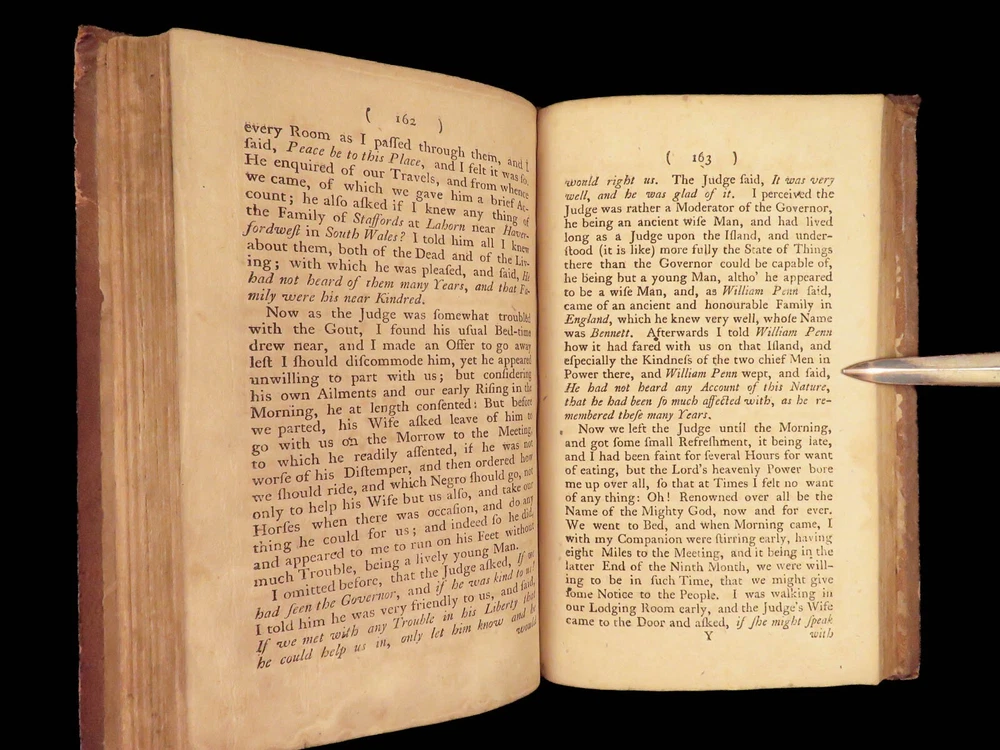 ( 162 )
every Room as I paſſed through them, and I
ſaid, Peace be to this Place, and I felt it was ſo.
He enquired of our Travels, and from whence
we came, of which we gave him a brief Ac-
count; he alſo aſked if I knew any thing of
the Family of Staffords at Lahorn near Haver-
fordweſt in South Wales? I told him all I knew
about them, both of the Dead and of the Liv-
ing; with which he was pleaſed, and ſaid, He
had not heard of them many Years, and that Fa-
mily were his near Kindred.
Now as the Judge was ſomewhat troubled
with the Gout, I found his uſual Bed-time
drew near, and I made an Offer to go away
leſt I ſhould diſcommode him, yet he appeared
unwilling to part with us; but conſidering
his own Ailments and our early Riſing in the
Morning, he at length conſented: But before
we parted, his Wife aſked leave of him to
go with us on the Morrow to the Meeting,
to which he readily aſſented, if he was not
worſe of his Diſtemper, and then ordered how
we ſhould ride, and which Negro ſhould go, not
only to help his Wife but us alſo, and take our
Horſes when there was occaſion, and do any
thing he could for us; and indeed ſo he did,
and appeared to me to run on his Feet without
much Trouble, being a lively young Man.
I omitted before, that the Judge aſked, If we
had ſeen the Governor, and if he was kind to us?
I told him he was very friendly to us, and ſaid,
If we met with any Trouble in his Liberty that
he could help us in, only let him know and he
would
( 163 )
would right us. The Judge ſaid, It was very
well, and he was glad of it. I perceived the
Judge was rather a Moderator of the Governor,
he being an ancient wiſe Man, and had lived
long as a Judge upon the Iſland, and under-
ſtood (it is like) more fully the State of Things
there than the Governor could be capable of,
he being but a young Man, altho' he appeared
to be a wiſe Man, and, as William Penn ſaid,
came of an ancient and honourable Family in
England, which he knew very well, whoſe Name
was Bennett. Afterwards I told William Penn
how it had fared with us on that Iſland, and
eſpecially the Kindneſs of the two chief Men in
Power there, and William Penn wept, and ſaid,
He had not heard any Account of this Nature,
that he had been ſo much affected with, as he re-
membered theſe many Years.
Now we left the Judge until the Morning,
and got ſome ſmall Refreſhment, it being late,
and I had been faint for ſeveral Hours for want
of eating, but the Lord's heavenly Power bore
me up over all, ſo that at Times I felt no want
of any thing: Oh! Renowned over all be the
Name of the Mighty God, now and for ever.
We went to Bed, and when Morning came, I
with my Companion were ſtirring early, having
eight Miles to the Meeting, and it being in the
latter End of the Ninth Month, we were will-
ing to be in ſuch Time, that we might give
ſome Notice to the People. I was walking in
our Lodging Room early, and the Judge's Wife
came to the Door and aſked, if ſhe might ſpeak
Y with